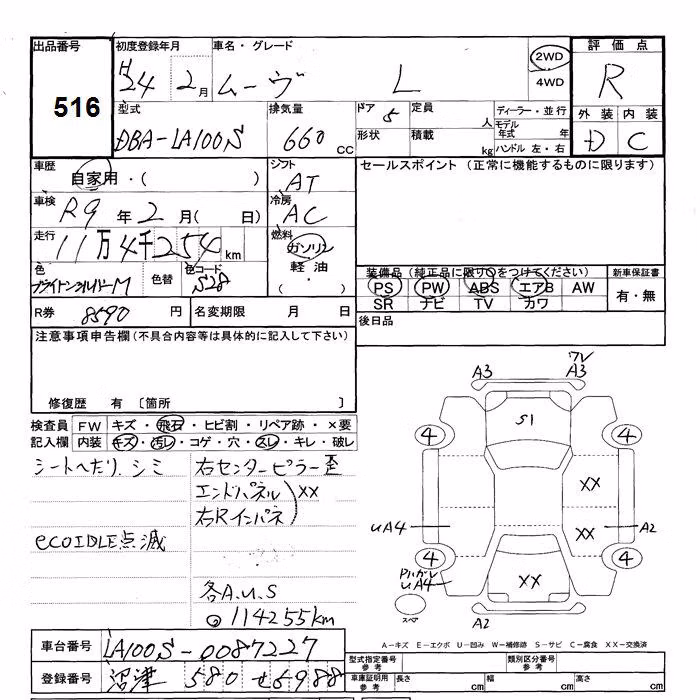 出品番号
516
初度登録年月
H24 2月
車名・グレード
ムーヴ L
2WD
4WD
評価点
R
外装 内装
D C
型式
DBA-LA100S
排気量
660 CC
ドア 5
定員 人
形状
積載 kg
ディーラー・並行
モデル年式 年
ハンドル 左・右
車歴
自家用・( )
シフト
AT
セールスポイント (正常に機能するものに限ります)
車検
R9年2月( 日)
冷房
AC
走行
11万4千254km
燃料
ガソリン
軽油・
( )
色
ブライトンシルバーM
色替
色コード
S28
装備品 (純正品に限り○をつけてください)
PS PW ABS エアB AW
SR ナビ TV カワ
新車保証書
有・無
R券 8590円
名変期限 月 日
後日品
注意事項申告欄(不具合内容等は具体的に記入して下さい)
修復歴 有 〔箇所 〕
検査員記入欄
FW キズ・飛石・ヒビ割・リペア跡・×要
内装 キズ・汚レ・コゲ・穴・スレ・キレ・破レ
シートへたり、シミ
右センターピラー歪
エンドパネル
右Rインパネ
XX
ecoIDLE点滅
各A.U.S
◎114255km
車台番号 LA100S-0087227
登録番号 沼津 580 せ6988
A3
A3
S1
4
4
XX
XX
UA4
A2
4
4
UA4
XX
スペア
A2
A-キズ E-エクボ U-凹み W-補修跡 S-サビ C-腐食 XX-交換済
型式指定番号 参考
類別区分番号 参考
車庫証明用 参考
長さ cm
幅 cm
高さ cm